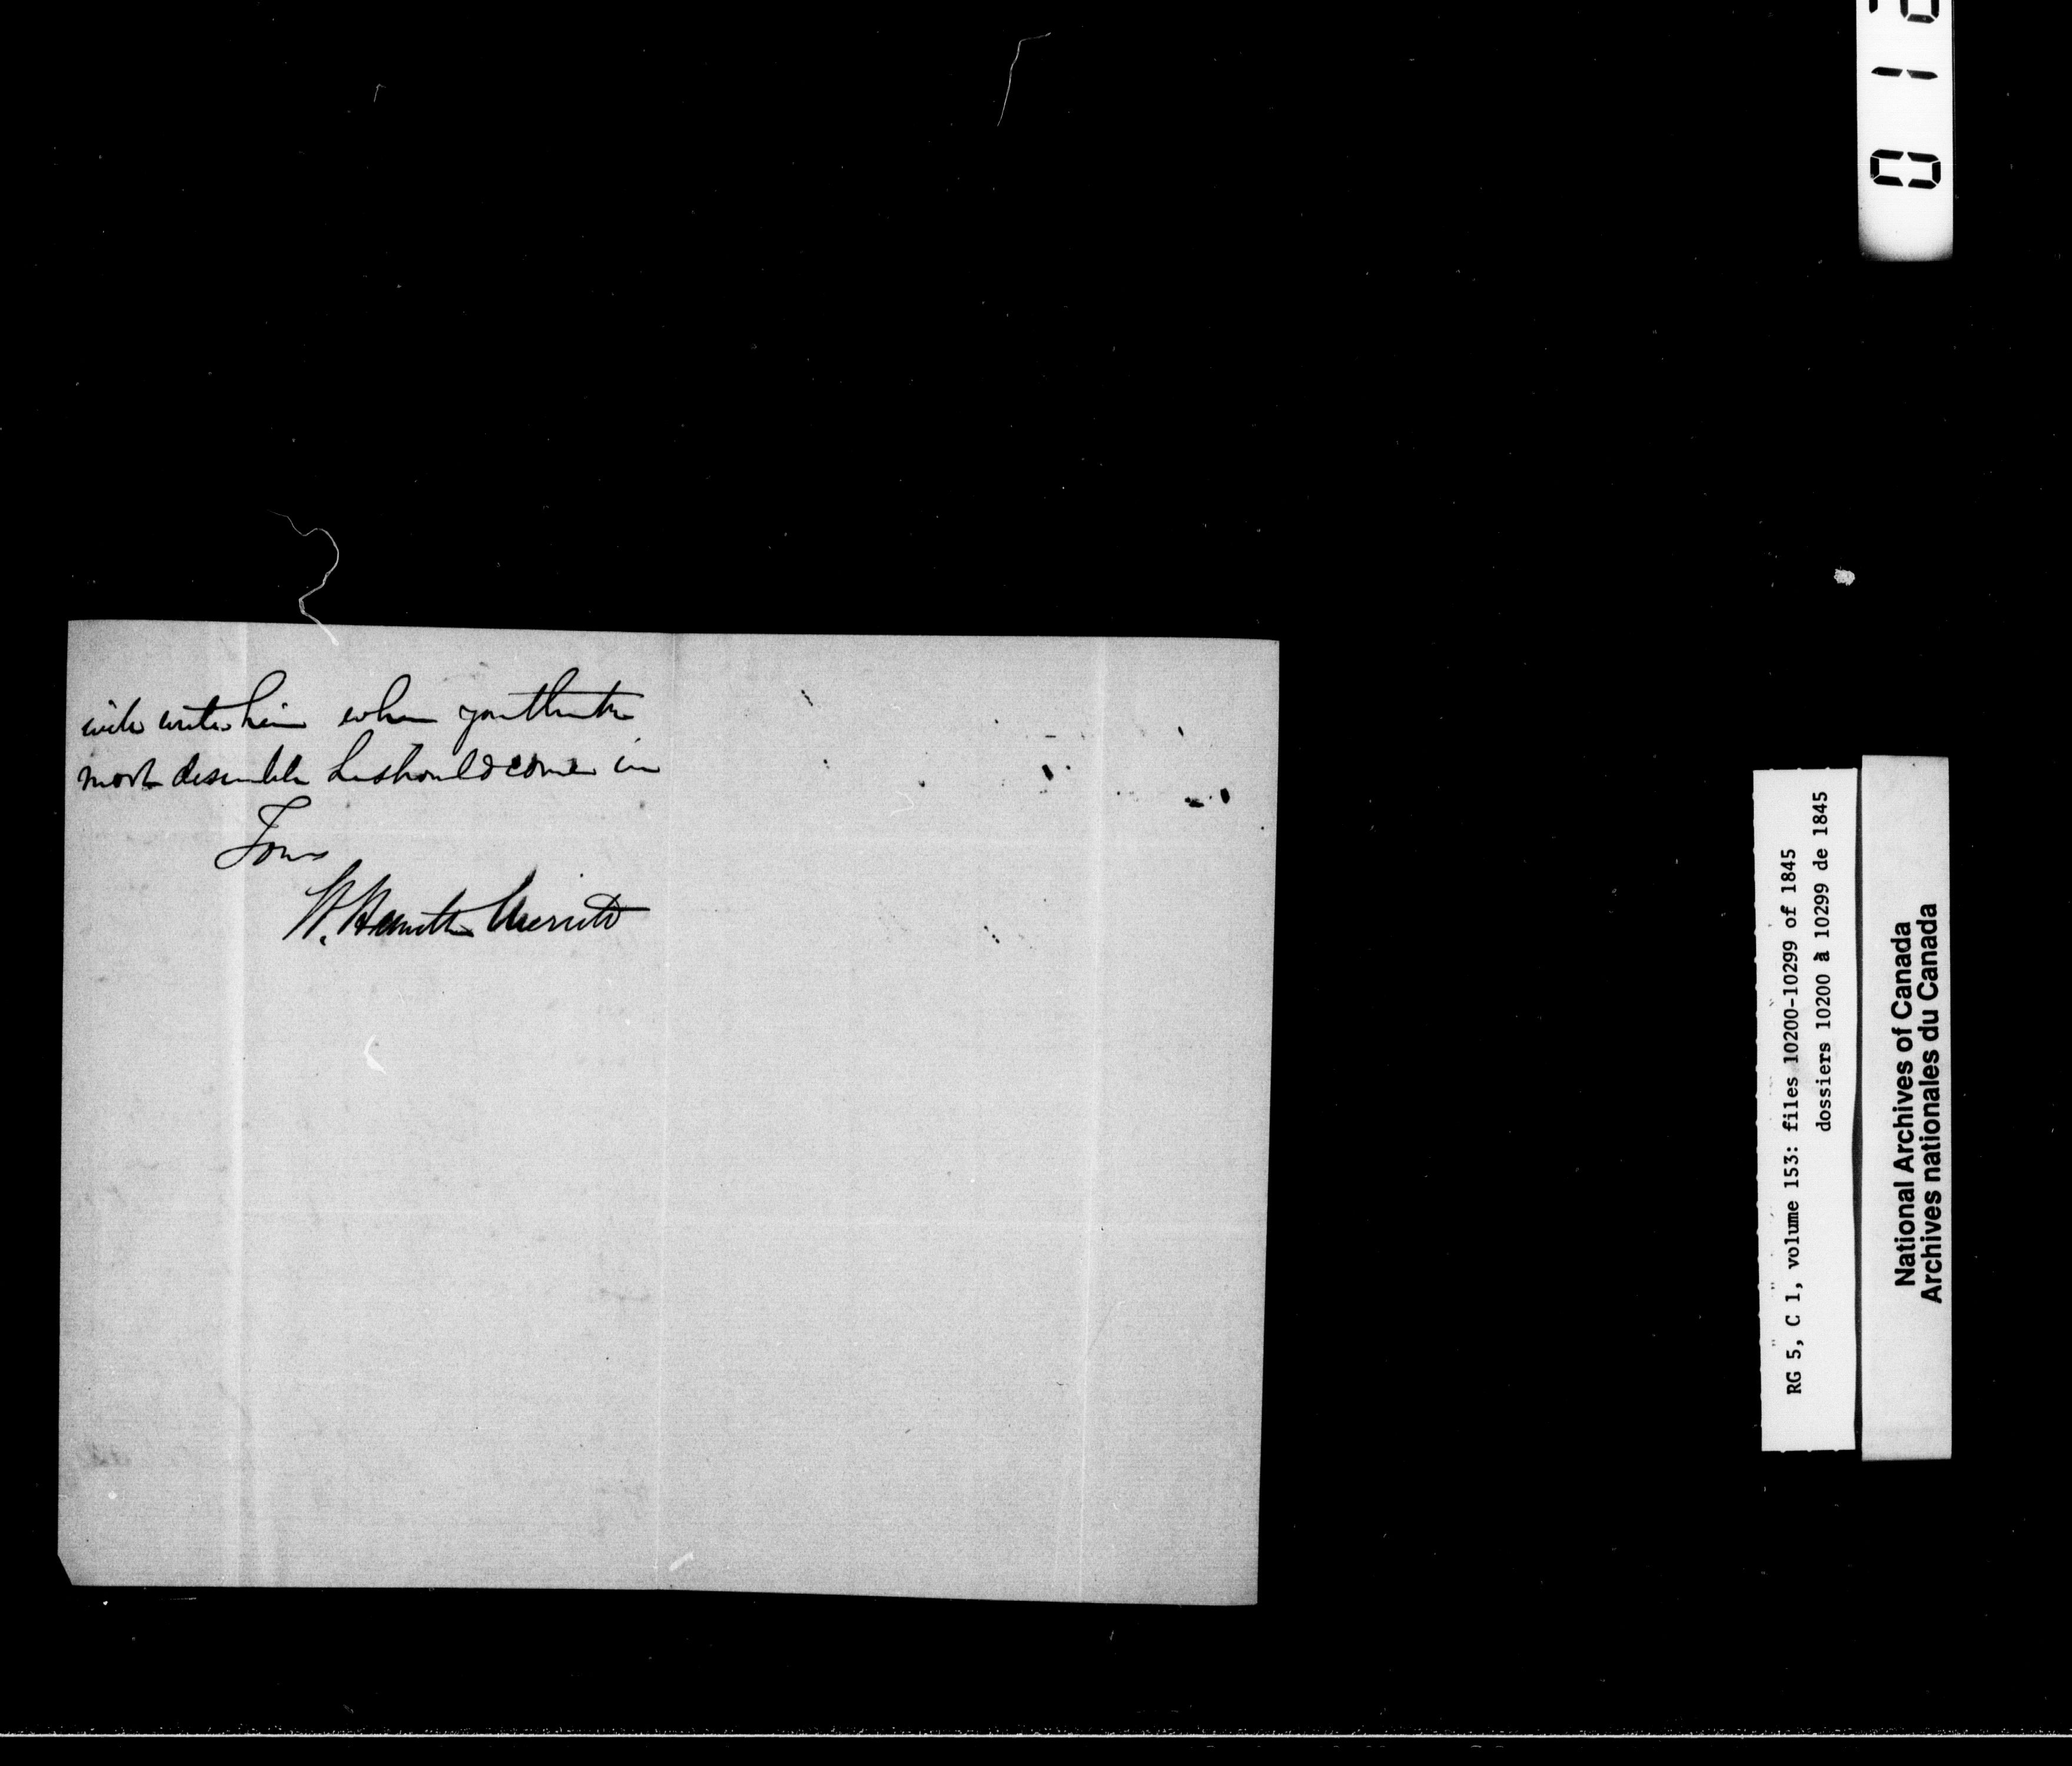 will write him when you think
most desirable he should come in
Yours
W. Hamilton Merritt
RG 5, C 1, volume 153: files 10200-10299 of 1845
dossiers 10200 à 10299 de 1845
National Archives of Canada
Archives nationales du Canada